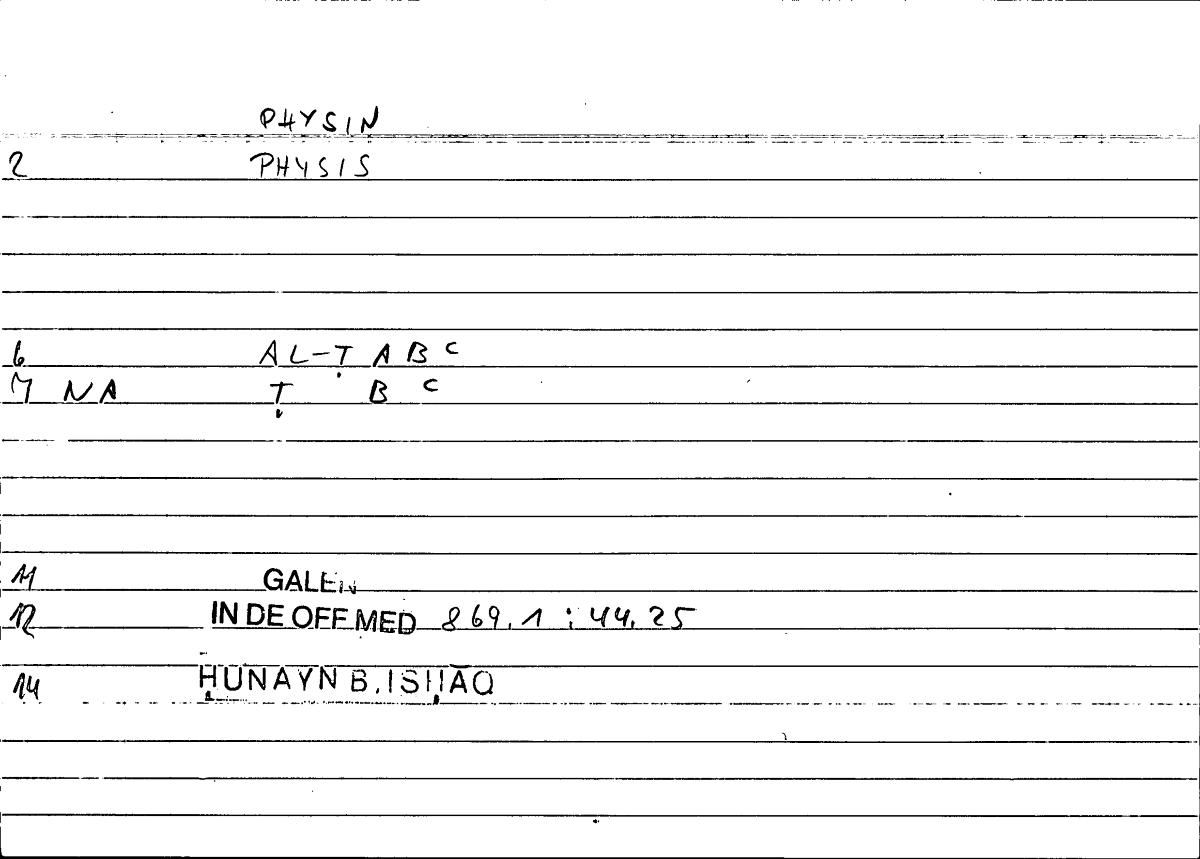 PHYSIN
2 PHYSIS
6 AL-ṬABᶜ
7 NA Ṭ B ᶜ
11 GALEN
12 IN DE OFF MED 869,1 ; 44,25
14 ḤUNAYN B. ISḤĀQ